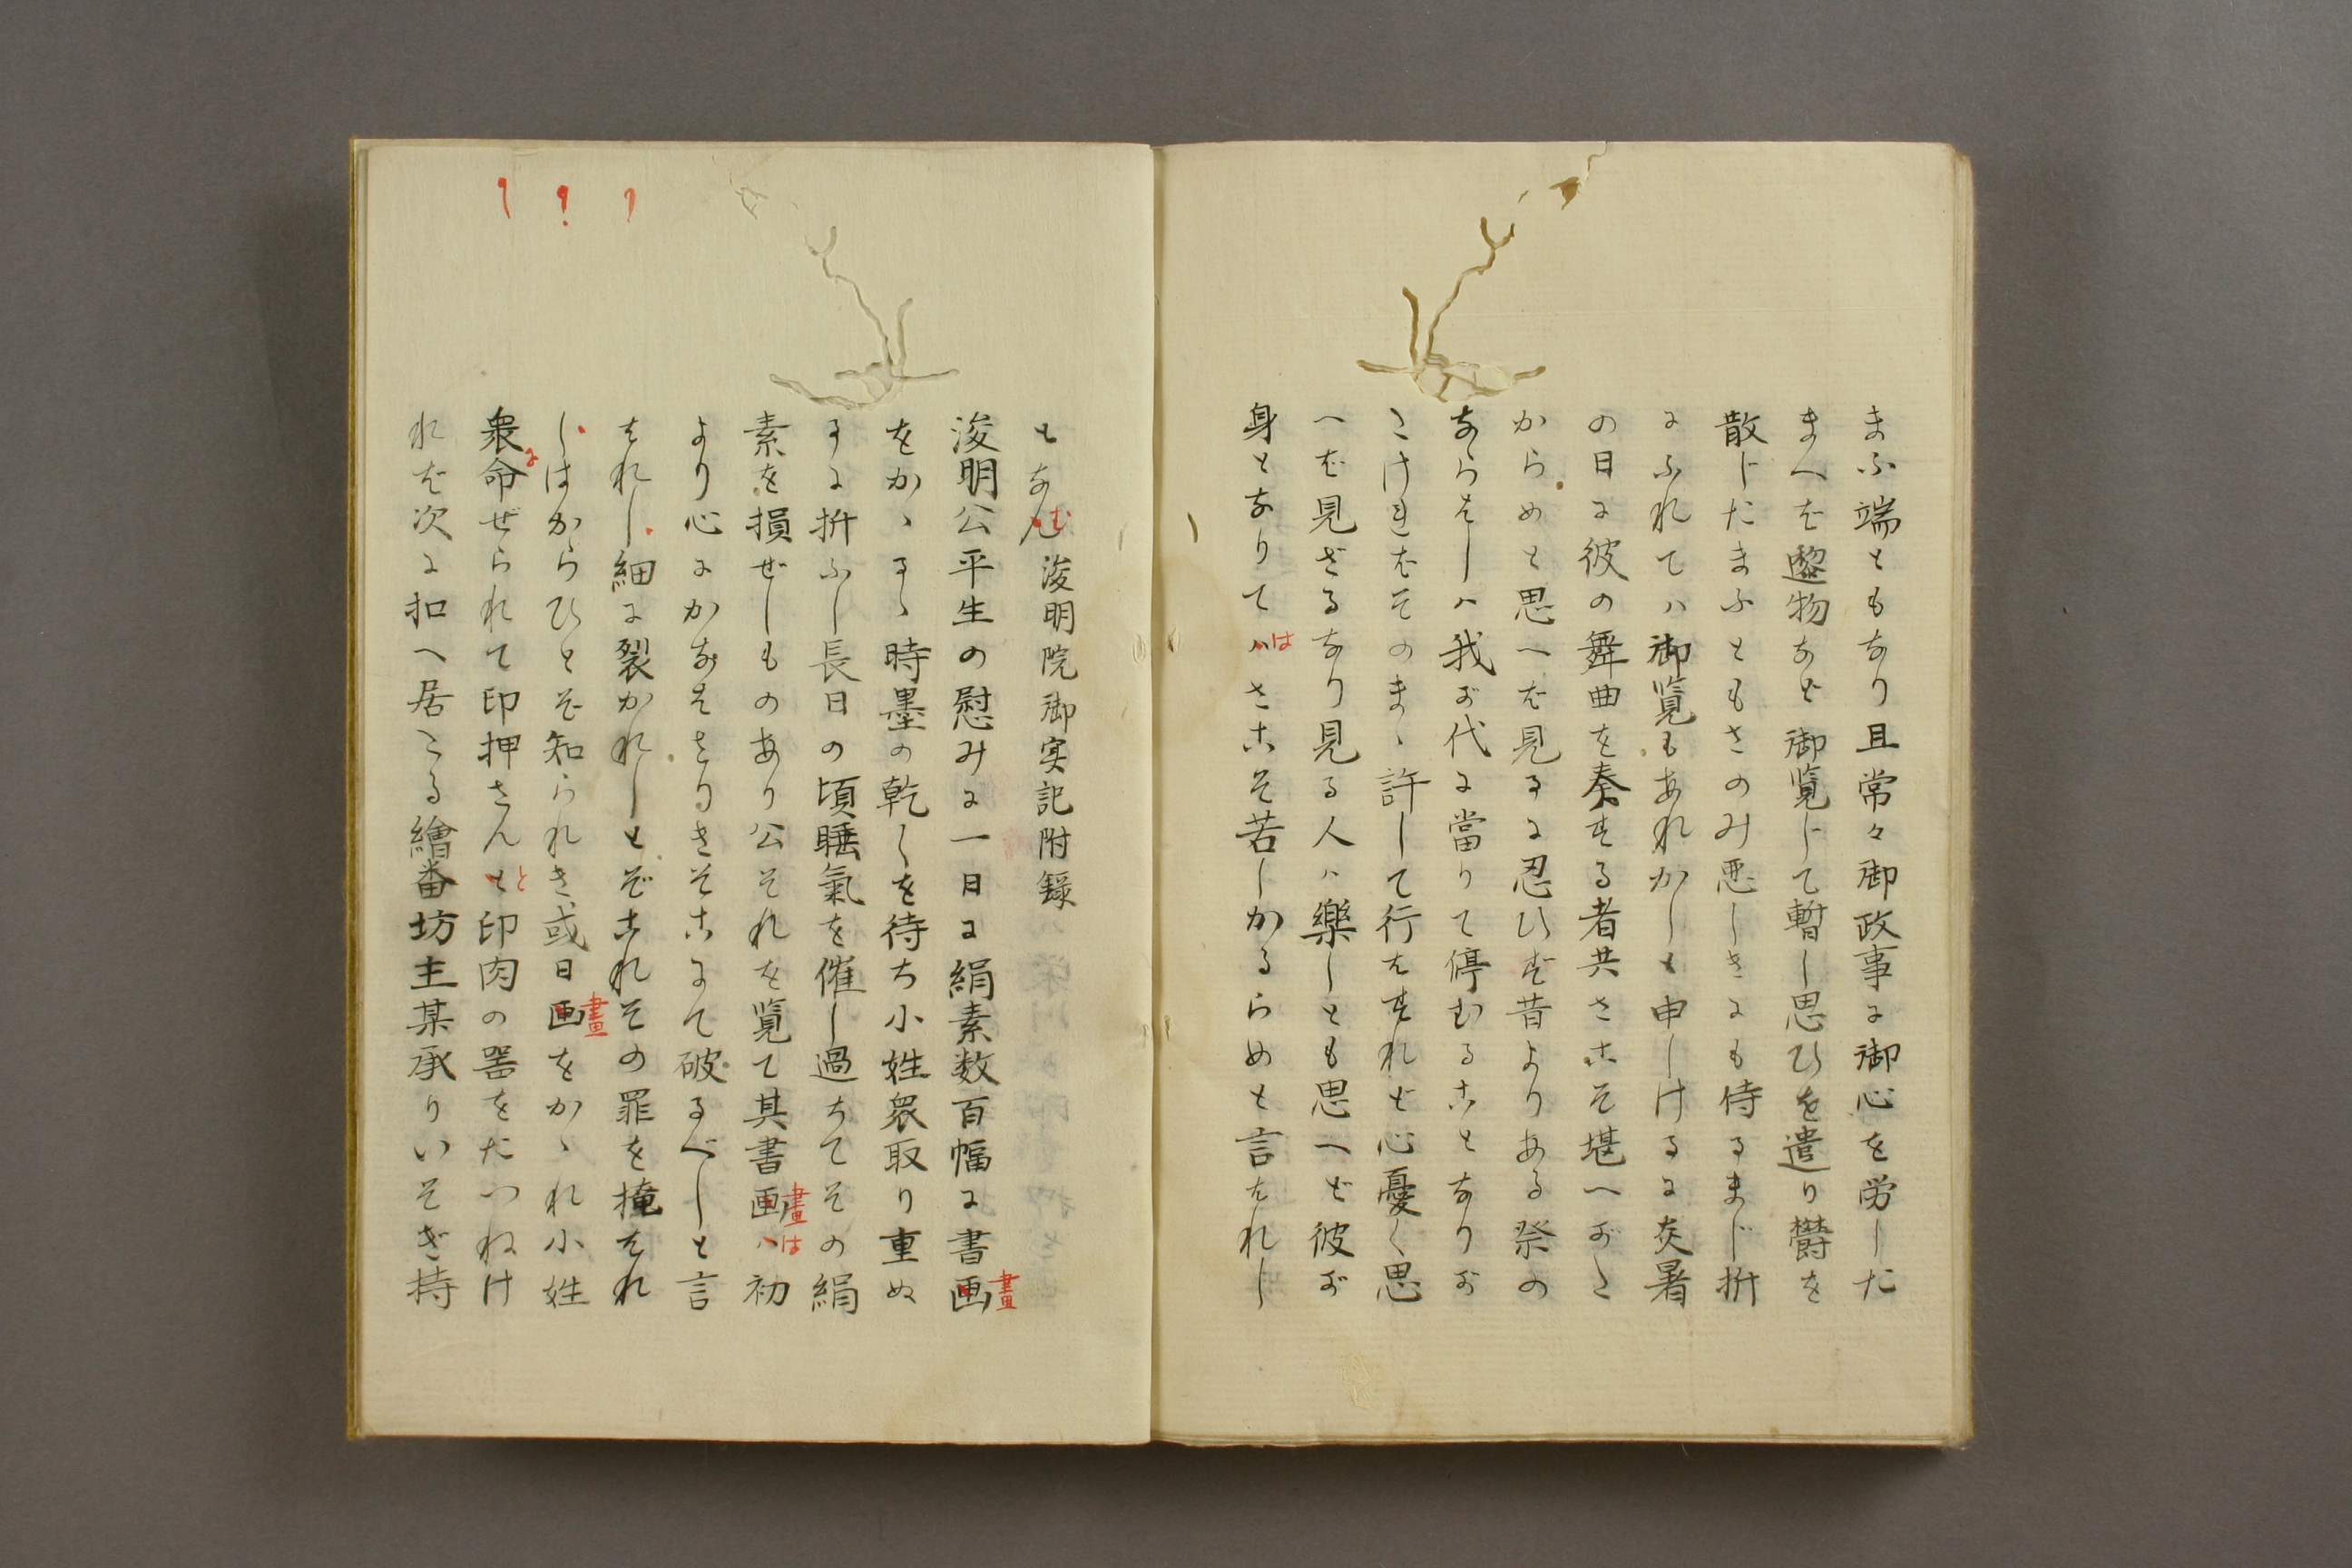 まふ端ともなり且常々御政事に御心を労した
まへば遊物など御覧じて暫し思ひを遣り欝を
散じたまふともさのみ悪しきにも侍るまじ拚
にふれてハ御覧もあれかしと申しけるに炎暑
の日に彼の舞曲を奏する者共さこそ堪へがた
からめと思へば見るに忍ひず昔よりある祭の
ならはしハ我が代に當りて停むることなりが
たければそのまゝ許して行はすれど心憂く思
へば見ざるなり見る人ハ樂しとも思へど彼が
身となりてハはさこそ苦しからめと言はれし
となむ 浚明院御実記附録
浚明公平生の慰みに一日に絹素数百幅に書画畫
をかゝるゝ時墨の乾くを待ち小姓衆取り重ぬ
るに拚ふし長日の頃睡氣を催し過ちてその絹
素を損ぜしものあり公それを覧て其書画畫ハは初
より心にかなはさりきそこにて破るべしと言
はれし細に裂かれしとぞこれその罪を掩はれ
しはからひとぞ知られき或日画畫をかゝれ小姓
衆に命ぜられて印押さんとと印肉の器をたつねけ
れば次に扣へ居たる繪番坊主某承りいそぎ持